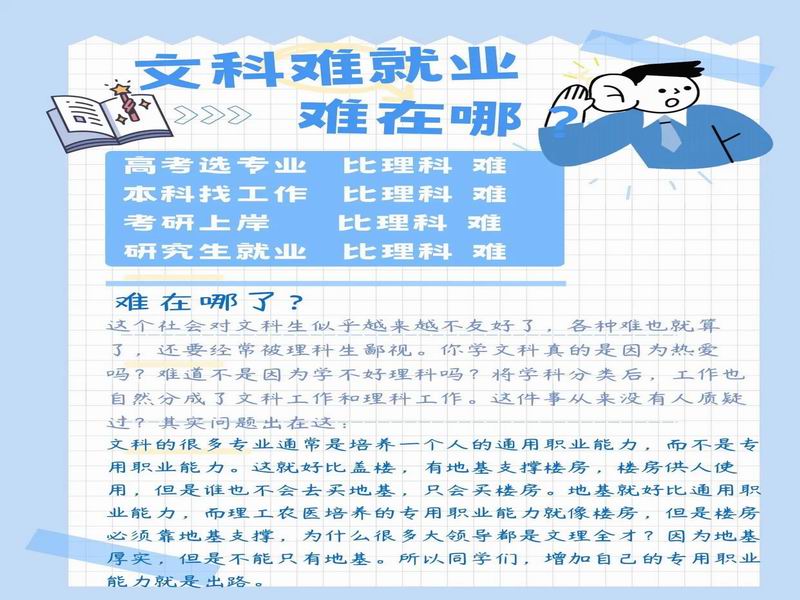 文科难就业
难在哪？
高考选专业 比理科 难
本科找工作 比理科 难
考研上岸 比理科 难
研究生就业 比理科 难
难在哪了？
这个社会对文科生似乎越来越不友好了，各种难也就算
了，还要经常被理科生鄙视。你学文科真的是因为热爱
吗？难道不是因为学不好理科吗？将学科分类后，工作也
自然分成了文科工作和理科工作。这件事从来没有人质疑
过？其实问题出在这：
文科的很多专业通常是培养一个人的通用职业能力，而不是专
用职业能力。这就好比盖楼，有地基支撑楼房，楼房供人使
用，但是谁也不会去买地基，只会买楼房。地基就好比通用职
业能力，而理工农医培养的专用职业能力就像楼房，但是楼房
必须靠地基支撑，为什么很多大领导都是文理全才？因为地基
厚实，但是不能只有地基。所以同学们，增加自己的专用职业
能力就是出路。